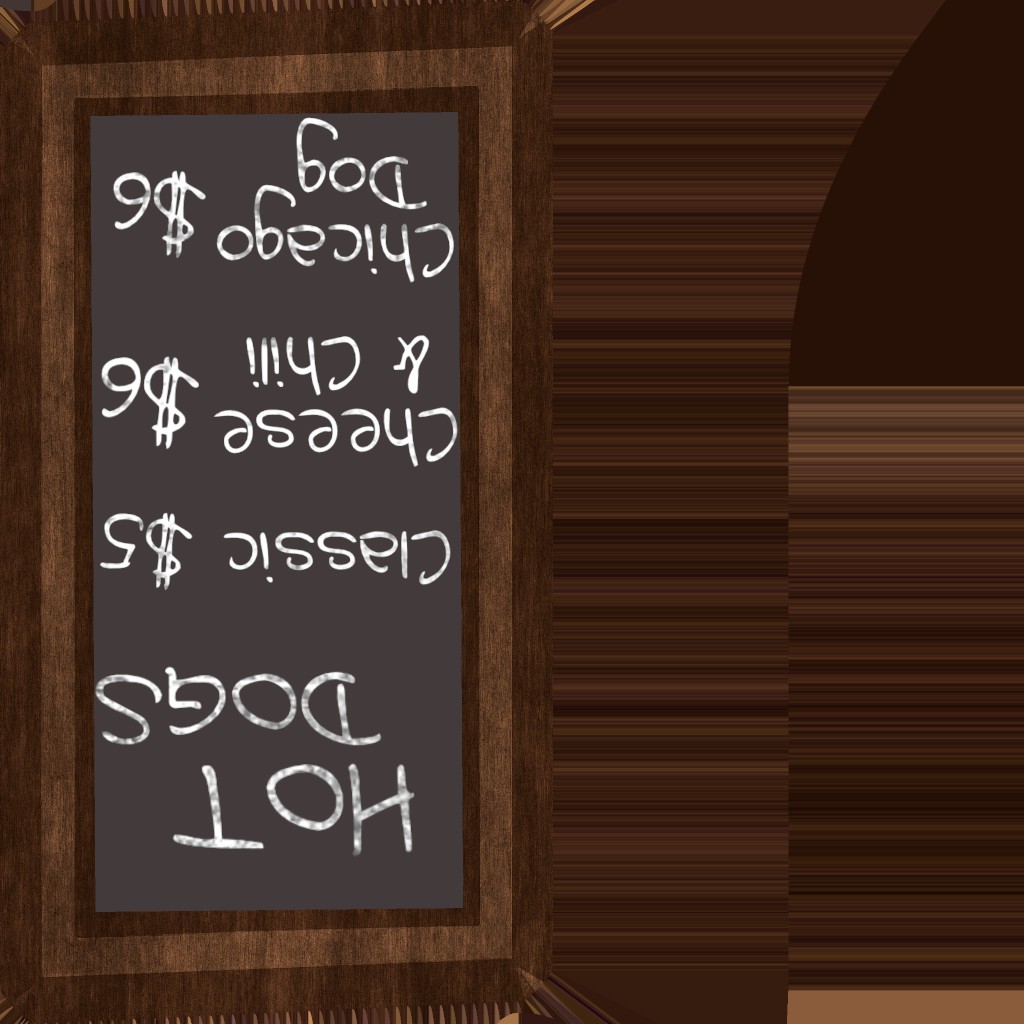 HOT
DOGS
Classic $5
Cheese
& Chili $6
Chicago
Dog $6